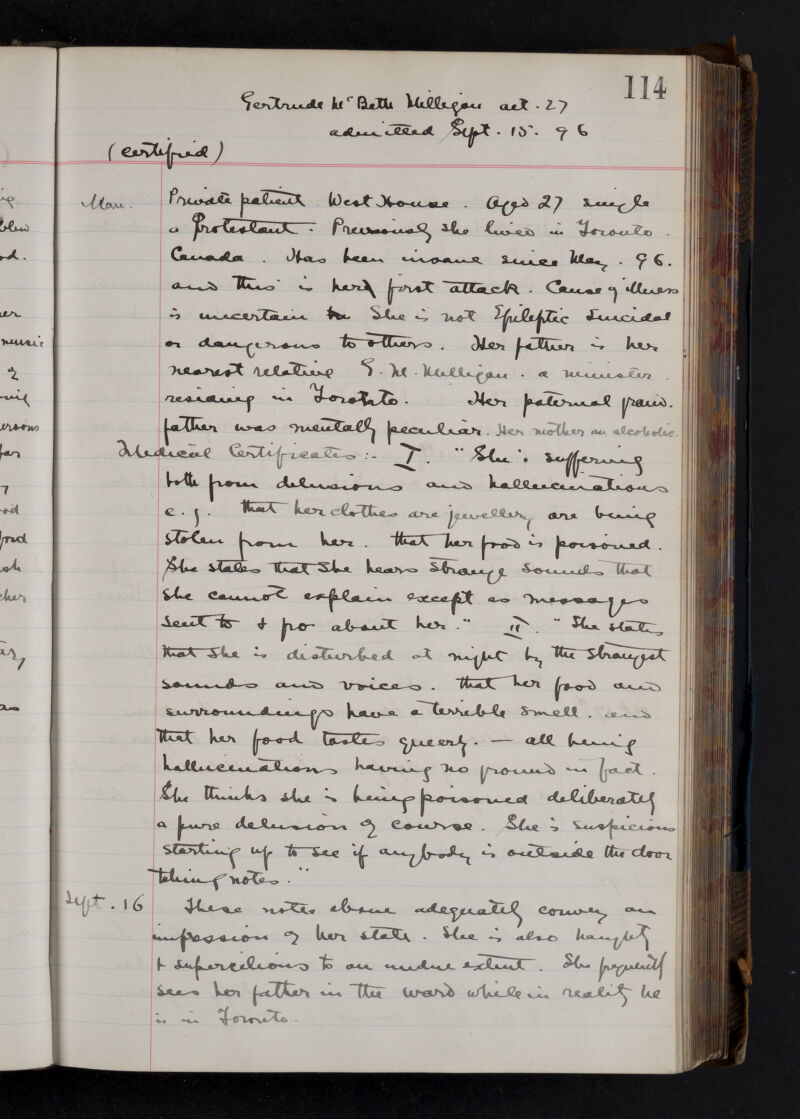 114
Gertrude McBeth Milligan aet. 27
admitted Sept. 15. 96
(certified)
Man. Private patient West House. Aged 27 single
a Protestant. Previously she lived in Toronto.
Canada. Has been insane since May. 96.
and this is her first attack. Cause of illness
is uncertain She is not Epileptic Suicidal
or dangerous to others. Her father is her
nearest relative G. M. Milligan. a minister.
residing in Toronto. Her paternal grand.
father was mentally peculiar. Her mother an alcoholic.
Medical Certificates:- I. "She is suffering
both from delusions and hallucinations
e.g. that her clothes are jewellery are being
stolen from her. that her food is poisoned.
She states that she hears strange sounds that
she cannot explain except as messages
sent to & fro about her." II. "She states
that she is disturbed at night by the strangest
sounds and voices. that her food and
surroundings have a terrible smell. and
that her food tastes queerly. — all being
hallucinations having no ground in fact.
She thinks she is being poisoned deliberately
a pure delusion of course. She is suspicious
starting up to see if anybody is outside the door
taking notes."
Sept. 16 These notes above adequately convey an
impression of her state. She is also haughty
& supercilious to an undue extent. She frequently
sees her father in the ward while in reality he
is in Toronto.